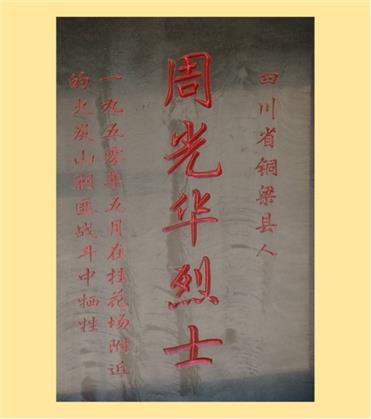 四川省铜梁县人
周光华烈士
一九五零年五月在桂花场附近
的火炭山剿匪战斗中牺牲